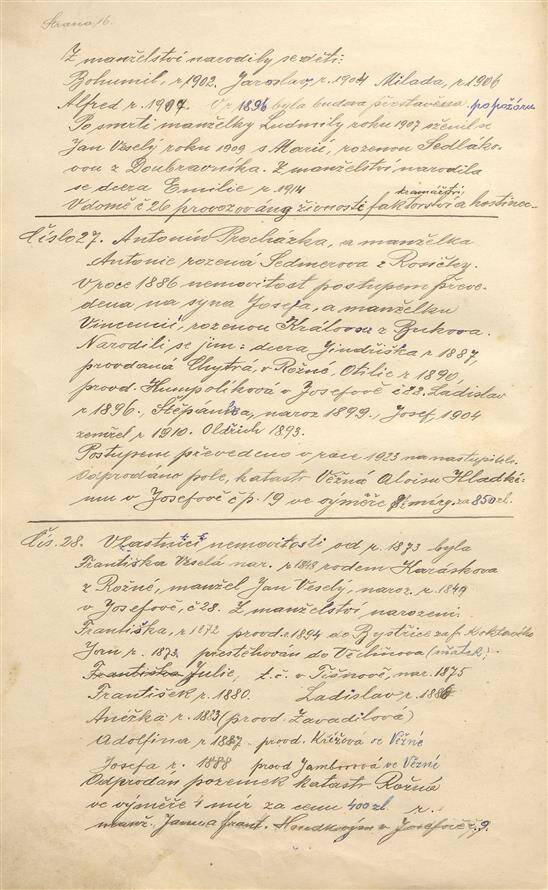 Strana 16.
Z manželství narodily se děti:
Bohumil, r 1902. Jaroslav, r. 1904 Milada, r 1906
Alfred r. 1907. V r 1896 byla budova přestavěna po požáru
Po smrti manželky Ludmily roku 1907 oženil se
Jan Veselý roku 1909 s Marií, rozenou Sedláko-
vou z Doubravníka. Z manželství narodila
se dcera Emilie r. 1914
kramářství,
V domě č 26 provozovány živnosti faktorství a hostinec.
Číslo 27. Antonín Procházka, a manželka
Antonie rozená Sedmerova z Rosičky.
V roce 1886 nemovitost postupem převe-
dena na syna Josefa, a manželku
Vincencii, rozenou Královou z Bukova.
Narodili se jim: dcera Jindřiška r 1887,
provdaná Chytrá, v Rožné, Otilie r 1890,
provd. Humpolíková v Josefově č 28. Ladislav
r 1896., Štěpánka, naroz 1899., Josef, 1904
zemřel r 1910. Oldřich 1893.
Postupem převedeno v roce 1923 na nastupitele.
Odprodáno pole, katastr Věžná Aloisu Hladké-
mu v Josefově č p. 19 ve výměře mír za 850 zl.
Čís. 28. Vlastnicí nemovitosti od r. 1873 byla
Františka Veselá nar. r 1848 rodem Karáskova
z Rožné, manžel Jan Veselý, naroz. r. 1849
v Josefově, č 28. Z manželství narozeni:
Františka, r 1872 provd. r. 1894 do Bystřice za
Jan r. 1873. přestěhován do Věchnova
Františka Julie, t. č. v Tišnově, nar. 1875
František r. 1880. Ladislav r. 1886
Anežka r. 1883 (provd Zavadilová)
Adolfina r 1887 provd. Křížová ve Věžné
Josefa r. 1888 provd Jamborová ve Věžné
Odprodán pozemek katastr Rožná
ve výměře 1 mír za cenu 400 zl. r.
manž. Janu a Frant. v Josefově č. 9.